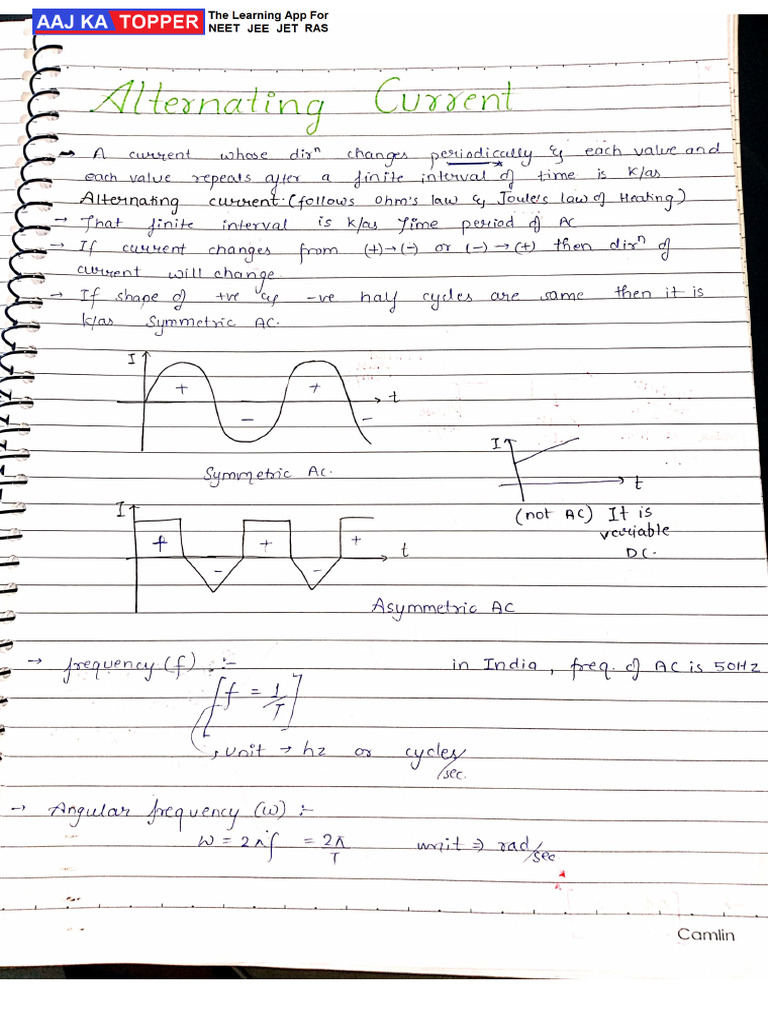 AAJ KA TOPPER
The Learning App For
NEET JEE JET RAS
Alternating Current
→ A current whose dirⁿ changes periodically & each value and
each value repeats after a finite interval of time is k/as
Alternating current. (follows Ohm's law & Joule's law of Heating)
→ That finite interval is k/as Time period of AC
→ If current changes from (+)→(-) or (-)→(+) then dirⁿ of
current will change.
→ If shape of +ve & -ve half cycles are same then it is
k/as Symmetric AC.
I
+ +
t
- -
Symmetric AC.
I
t
(not AC) It is
variable
DC.
I
+ + +
t
- -
Asymmetric AC
→ frequency (f) :- in India, freq. of AC is 50Hz
[f = 1/T]
unit → hz or cycles/sec.
→ Angular frequency (ω) :-
ω = 2πf = 2π/T unit ⇒ rad/sec
Camlin